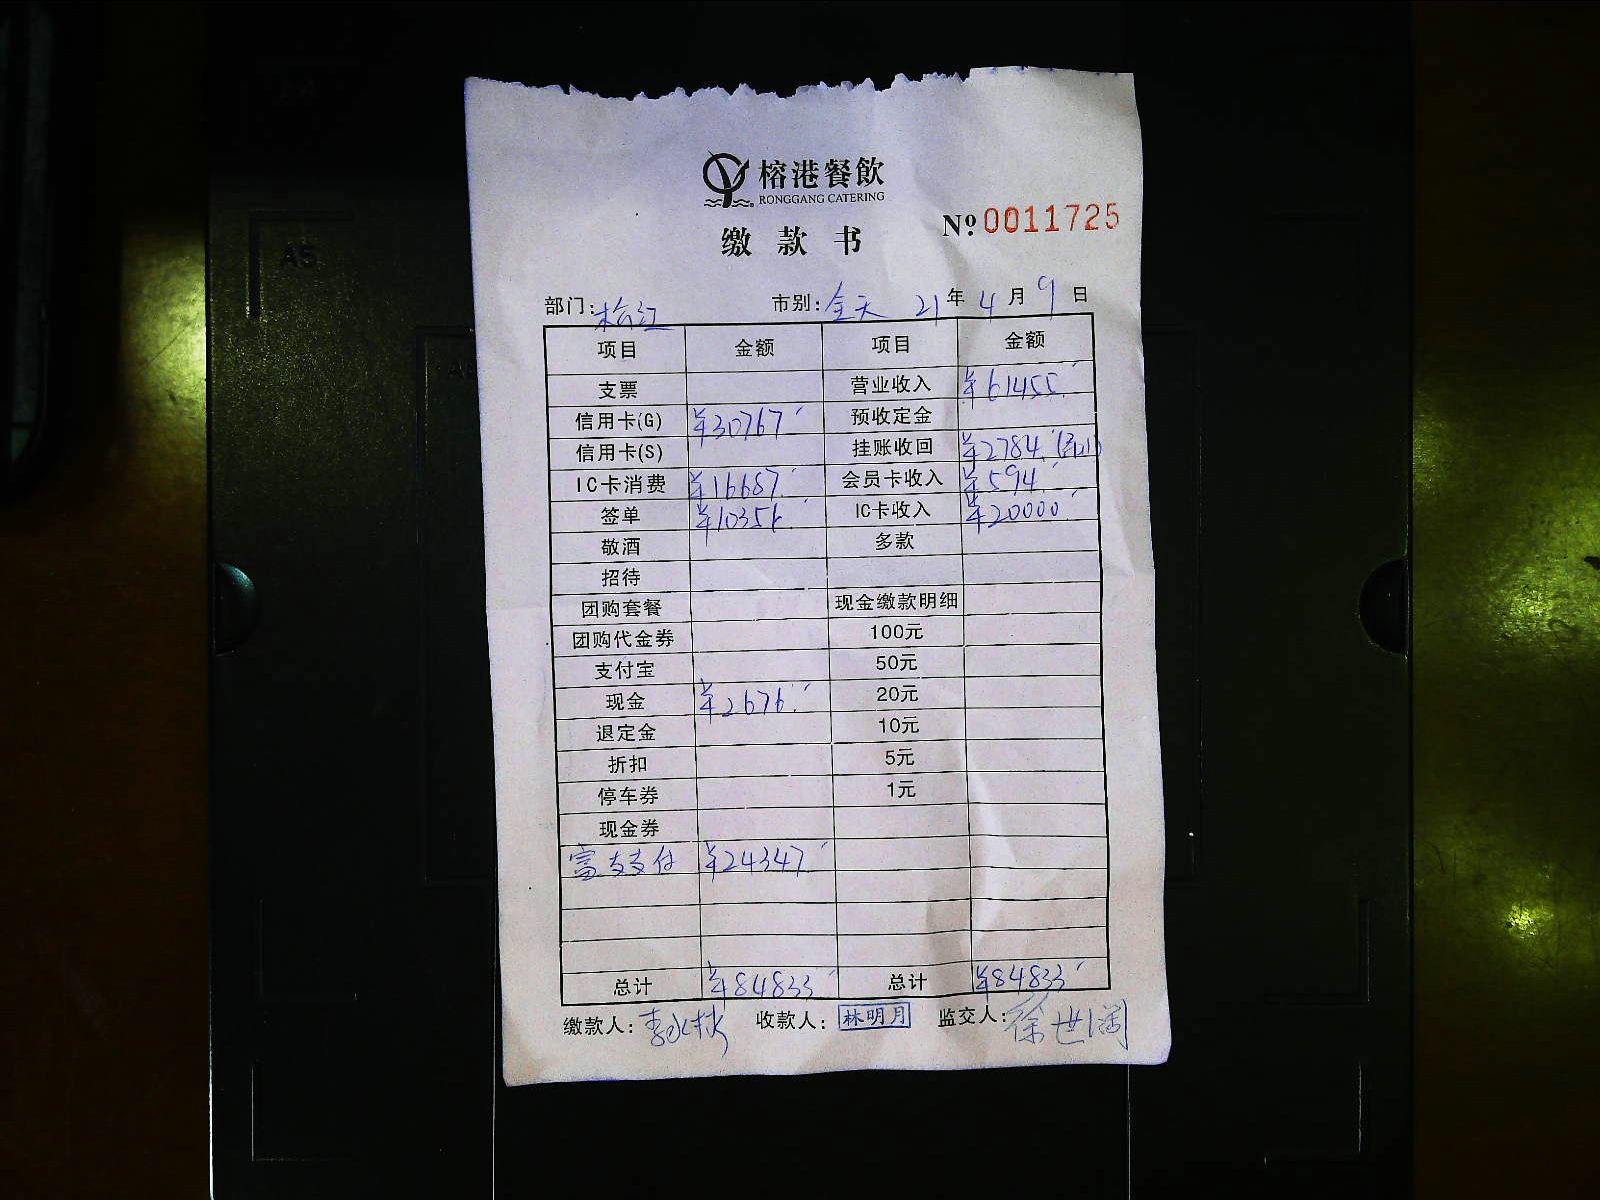 A5
榕港餐飲
RONGGANG CATERING
缴款书
Nº 0011725
部门: 松江 市别: 全天 21年4月9日
项目 金额 项目 金额
支票 营业收入 ¥61455.
信用卡(G) ¥30767 预收定金
信用卡(S) 挂账收回 ¥2784.
IC卡消费 ¥16687. 会员卡收入 ¥594
签单 ¥10356. IC卡收入 ¥20000.
敬酒 多款
招待
团购套餐 现金缴款明细
团购代金券 100元
支付宝 50元
现金 ¥2676. 20元
退定金 10元
折扣 5元
停车券 1元
现金券
富友支付 ¥24347.
总计 ¥84833 总计 ¥84833
缴款人: 收款人: 林明月 监交人: 徐世